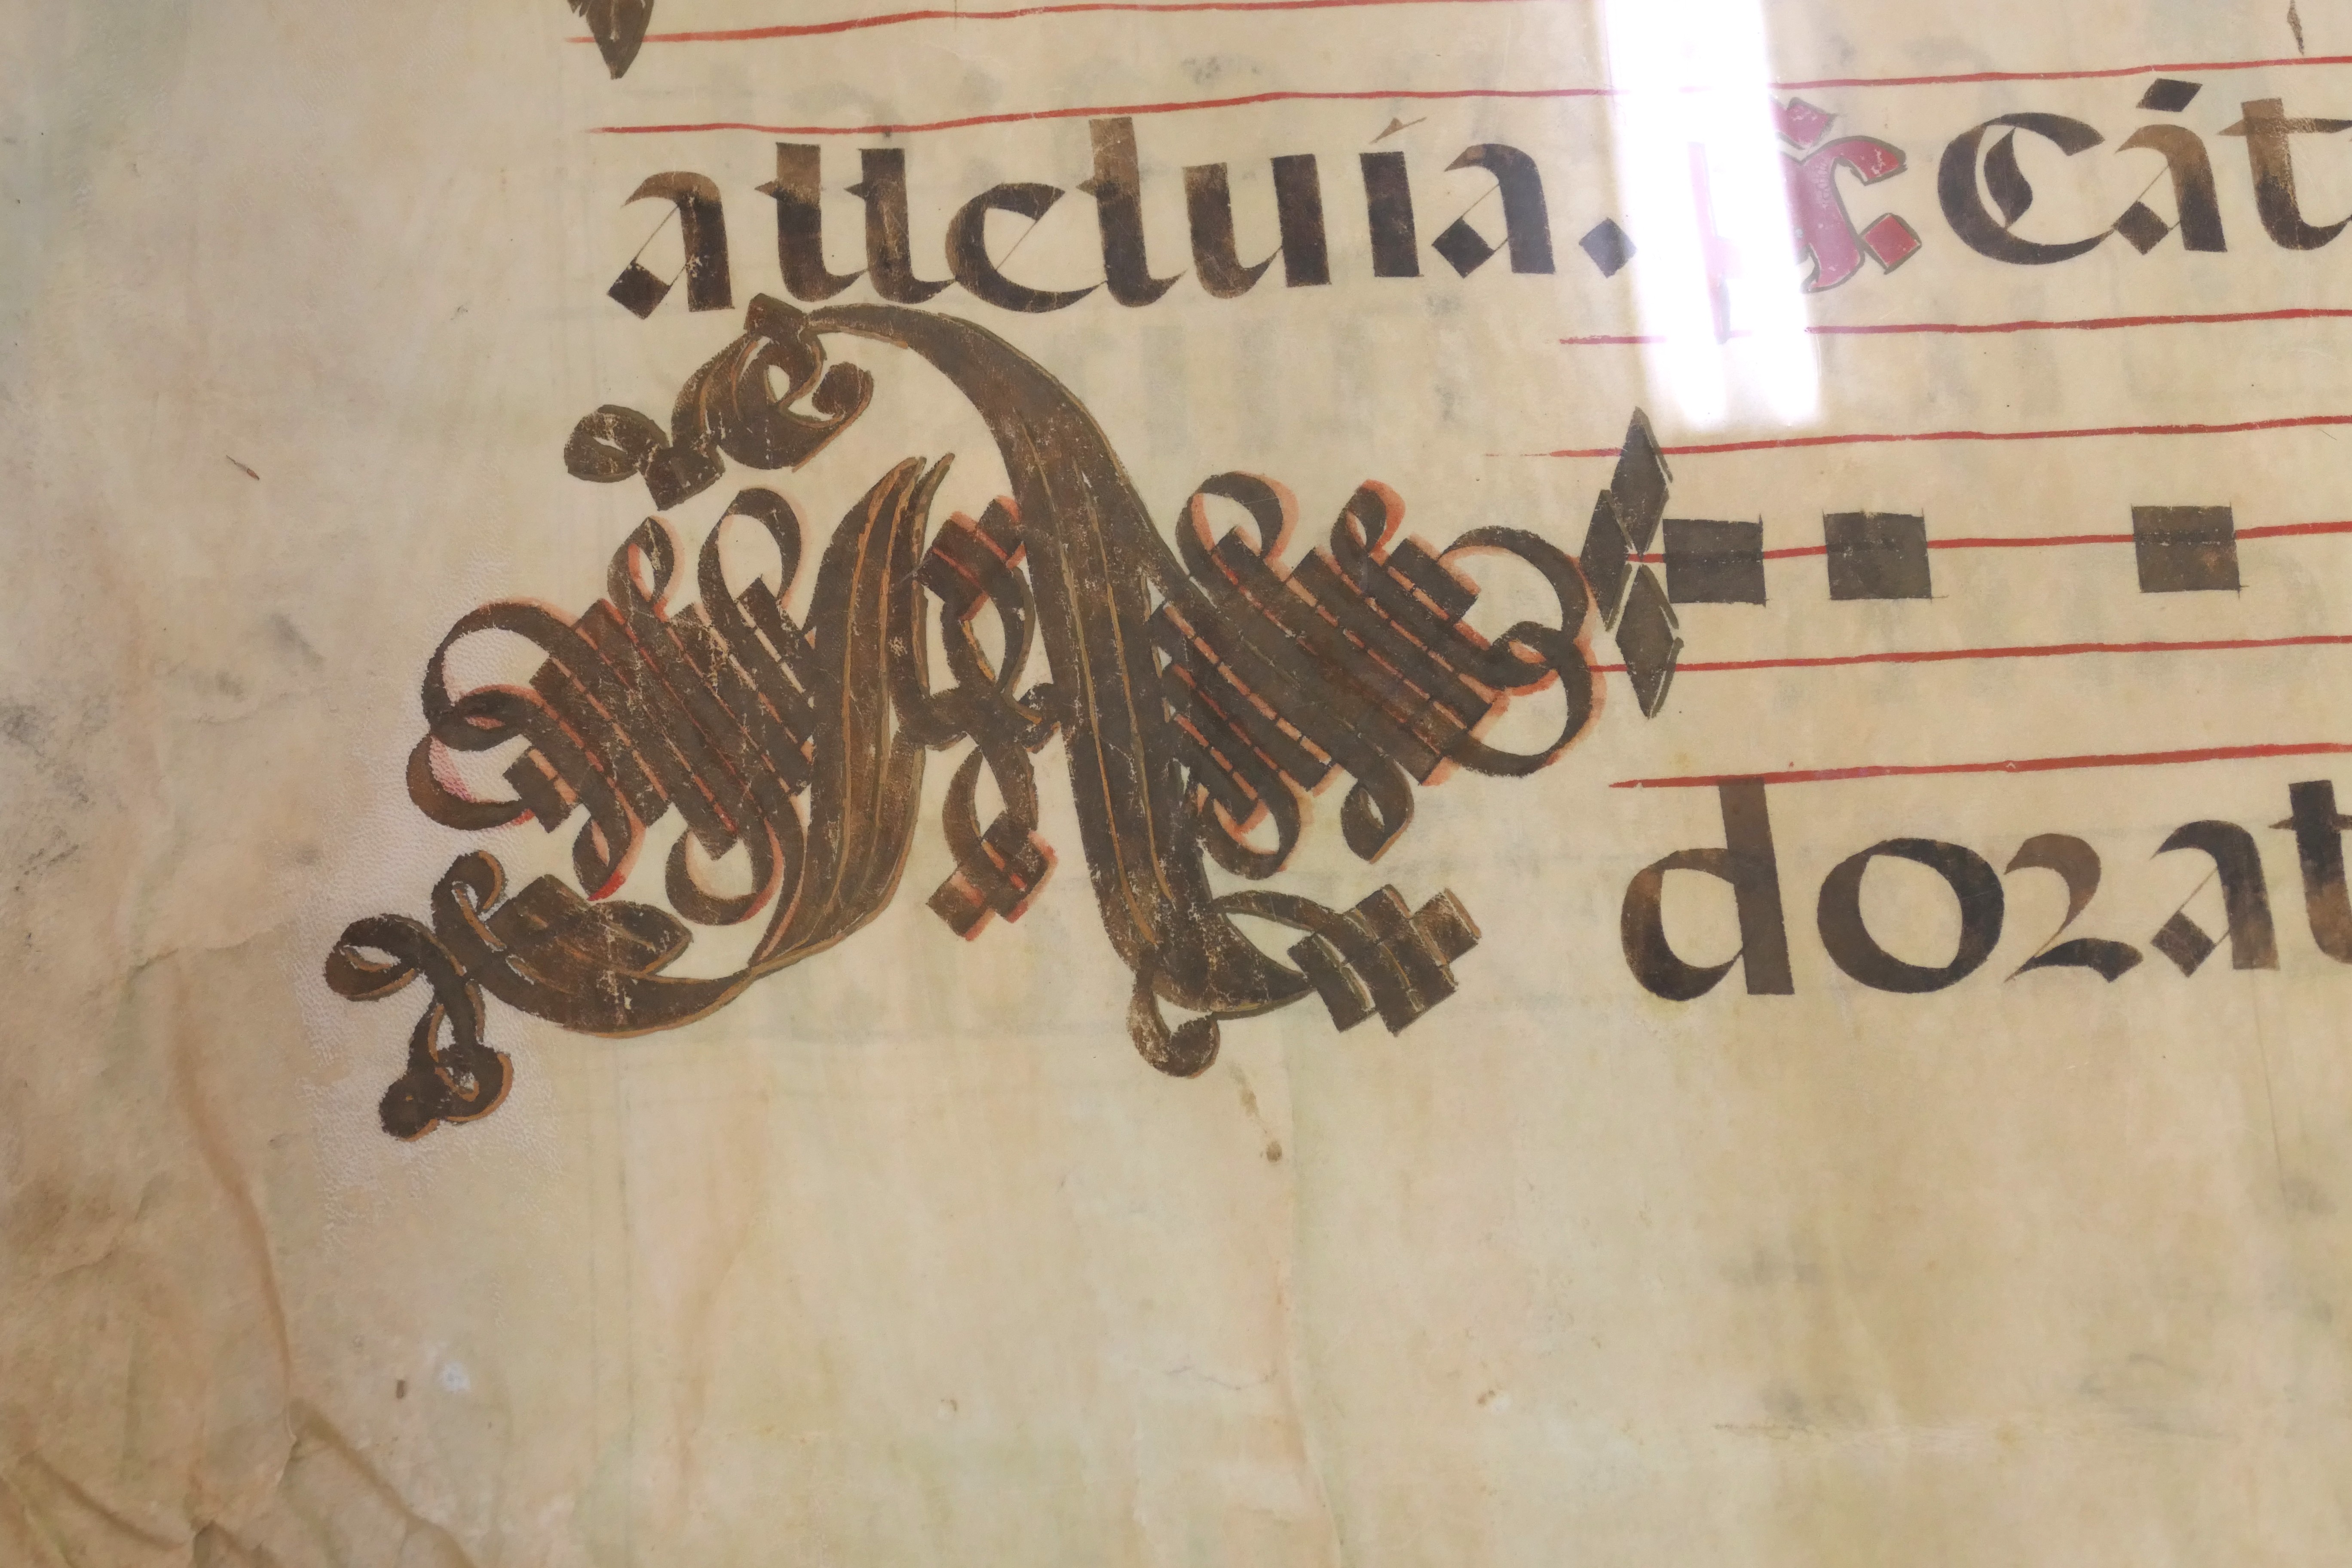 alleluía. Cát
Adorat